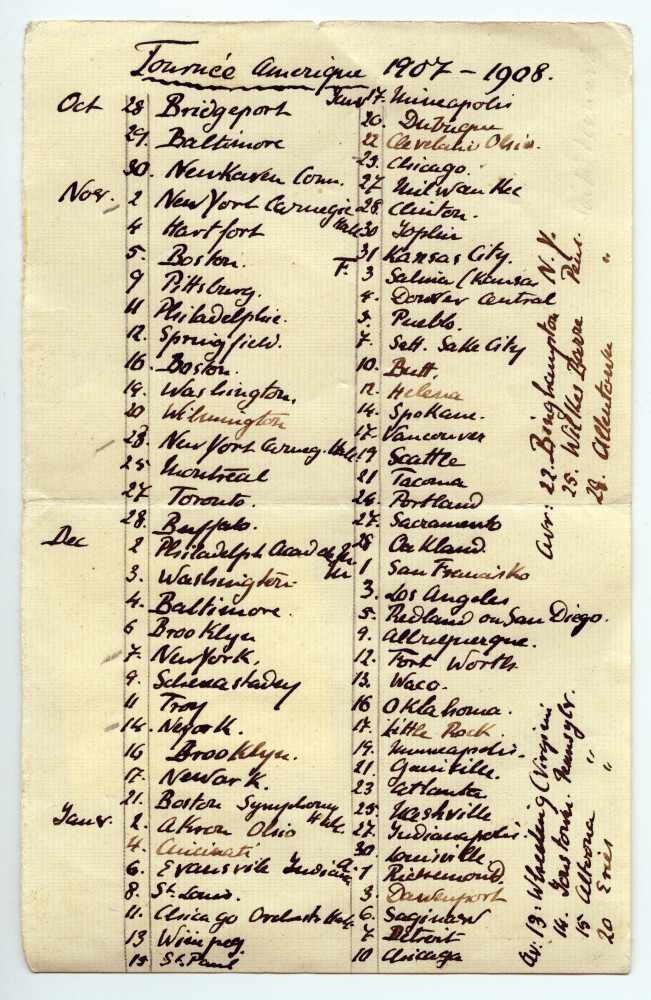 Tournée Amerique 1907 – 1908.
Oct 28 Bridgeport
29. Baltimore
30. New Haven Conn.
Nov. 2 New York Carnegie Hall
4 Hartfort
5. Boston.
9 Pittsburg.
11 Philadelphie.
12. Springfield.
16. Boston.
19. Washington.
20 Wilmington
23. New York Carneg. Hall
25 Montreal
27 Toronto.
28. Buffalo.
Dec 2 Philadelph Acad de
3. Washington
4. Baltimore.
6 Brooklyn
7. New York.
9. Schenastadey
11 Troy
14. Neyork.
16 Brooklyn.
17. Newark.
21. Boston Symphony Hall
Janv. 2. Akron Ohio
4. Cincinati
6. Evansville Indiana
8. St. Louis.
11. Chicago Orchestr Hall
13 Winipeg
15 St. Paul
Janv 17. Minneapolis
20. Dubuque
22 Cleveland Ohio.
23. Chicago.
27 Milwaukee
28. Clinton.
30 Joplin
31 Kansas City.
F. 3 Salina (Kansa
4. Dower Central
5. Pueblo.
7. Salt. Sake City
10. Butt.
12. Helena
14. Spokane.
17. Vancouver
19 Seattle
21 Tacoma
26. Portland
27. Sacramento
28 Oakland.
M 1 San Francisko
3. Los Angeles
5. Redland on San Diego.
9. Albuquerque.
12. Fort Worth
13. Waco.
16 Oklahoma.
17. Little Rock.
19. Minneapolis.
21. Gainville.
23 Atlanta
25. Nashville
27. Indianapolis.
30. Louisville.
A. 1 Richemond.
3. Davenport
6. Saginaw
7 Detroit
10 Chicago
Av. 13. Wheeling (Virgini
14. Jonstown. Pennsylv.
15 Altoona "
20 Eries "
Avr: 22. Binghampton N.Y.
25. Wilkes Barre Pens.
29. Allentown "